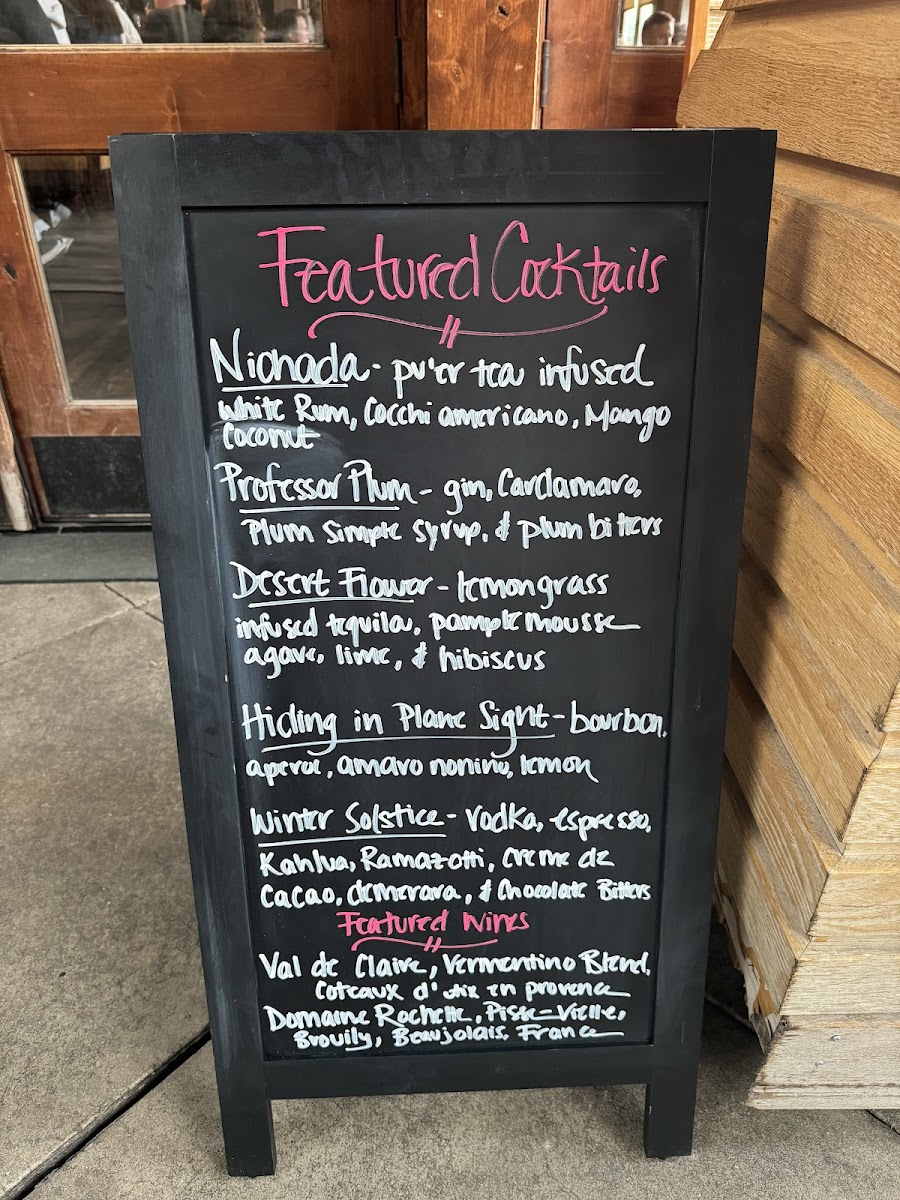 Featured Cocktails
Nionada - pu'er tea infused
White Rum, Cocchi americano, Mango
Coconut
Professor Plum - gin, Cardamaro,
Plum Simple Syrup, & plum bitters
Desert Flower - lemongrass
infused tequila, pamplemousse
agave, lime, & hibiscus
Hiding in Plane Sight - bourbon,
aperol, amaro nonino, lemon
Winter Solstice - Vodka, espresso,
Kahlua, Ramazotti, creme de
Cacao, demerara, & Chocolate Bitters
Featured Wines
Val de Claire, Vermentino Blend,
Coteaux d' aix en provence
Domaine Rochette, Pisse-Vielle,
Brouily, Beaujolais, France